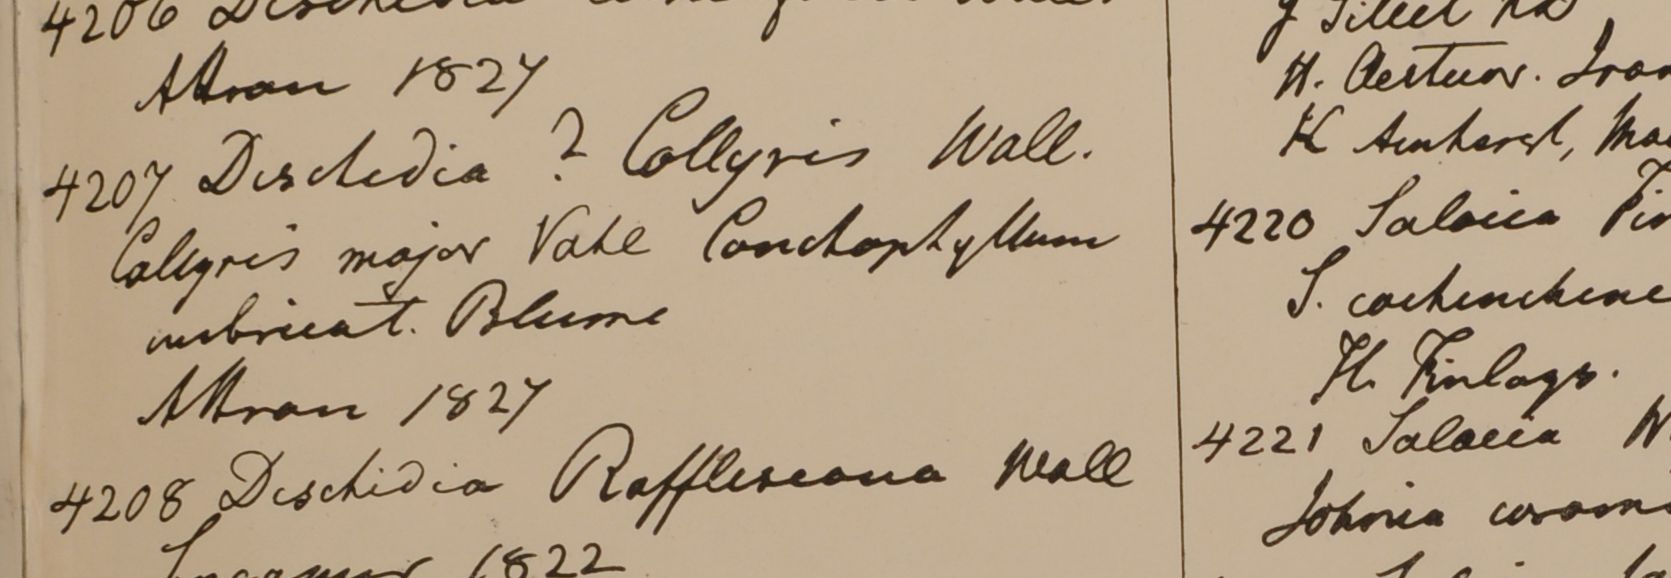 4206 Dischidia Wall
Attran 1827
4207 Dischidia ? Collyris Wall.
Collyris major Vahl Conchophyllum
imbricat. Blume
Attran 1827
4208 Dischidia Rafflesiana Wall
1822
J Sillet
H. Aestuar. Iraw
K Amherst, Ma
4220 Salacia Fin
S. cochinchine
H. Finlays.
4221 Salacia W
Johnia coroma